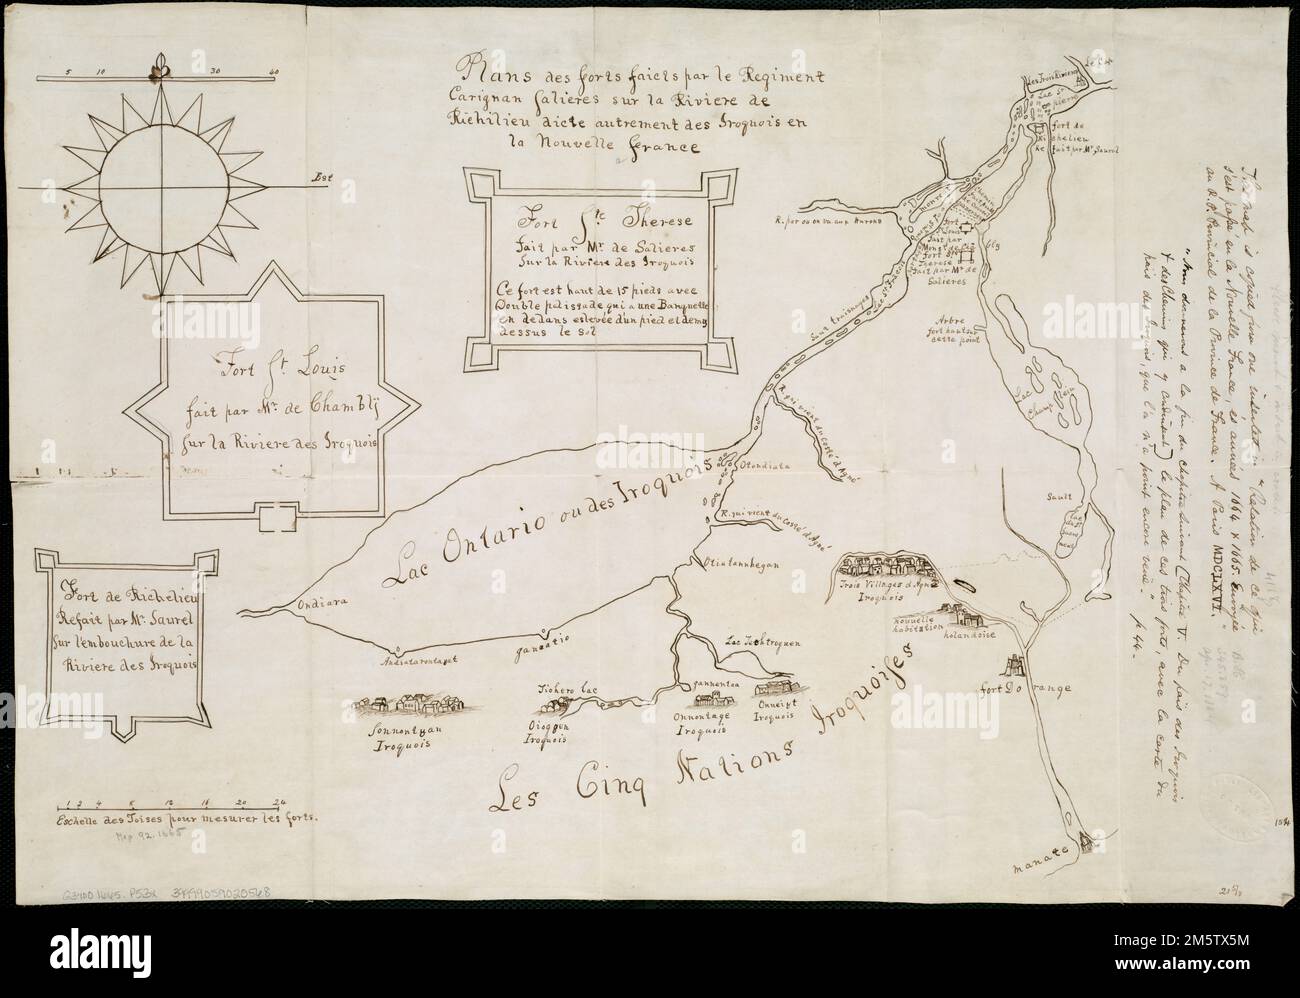 Plans des forts faicts par le Regiment
Carignan Salieres sur la Riviere de
Richilieu dicte autrement des Iroquois en
la Nouvelle France
5 10 30 40
Est
Fort Ste Therese
fait par Mr. de Salieres
Sur la Riviere des Iroquois
Ce fort est haut de 15 pieds avec
Double palissade, qui a une Banquette
en dedans eslevée d'un pied et demy
dessus le sol
Fort St. Louis
fait par Mr. de Chambly
sur la Riviere des Iroquois
Fort de Richelieu
Refait par Mr. Saurel
sur l'embouchure de la
Riviere des Iroquois
1 2 4 8 12 16 20 24
Eschelle des Toises pour mesurer les forts.
Map 92.1665
G3400 1665 .P53x 39999059020568
les Trois Rivieres
Lac St
pierre
fort de
Richelieu
fait par Mr Saurel
R. par ou on va aux Hurons
fort
St Louis
fait par
fort Ste
Therese
fait par Mr de
Salieres
Saut
Lac St
Arbre
fort haut sur
cette point
Lac
Champ
Sault
R. qui vient du costé d'Agné
Otondiata
R. qui vient du costé d'Agné
Lac Ontario ou des Iroquois
Otiatannhegan
Ondiara
Andiatarontaget
gansatio
Trois Villages d'Agné
Iroquois
nouvelle
habitation
holandoise
fort Dorange
Lac Techtroguen
Tiohero lac
gannentaa
Sonnontуan
Iroquois
Oioggen
Iroquois
Onnontage
Iroquois
Onneiyt
Iroquois
Les Cinq Nations Iroquoises
manate
This map is copied from one inserted in "Relation de ce qui
s'est passé en la Nouvelle France, és années 1664 & 1665. Envoyée
au R. P. Provincial de la Province de France. A Paris MDCLXVI."
"Nous donnerons a la fin du chapitre suivant (Chapitre V. Du païs des Iroquois
& des Chemins qui y conduisent) le plan de ces trois forts, avec la carte du
païs des Iroquois, que l'a n'a point encore veuë." p. 44.
alamy
Image ID: 2M5TX5M
www.alamy.com